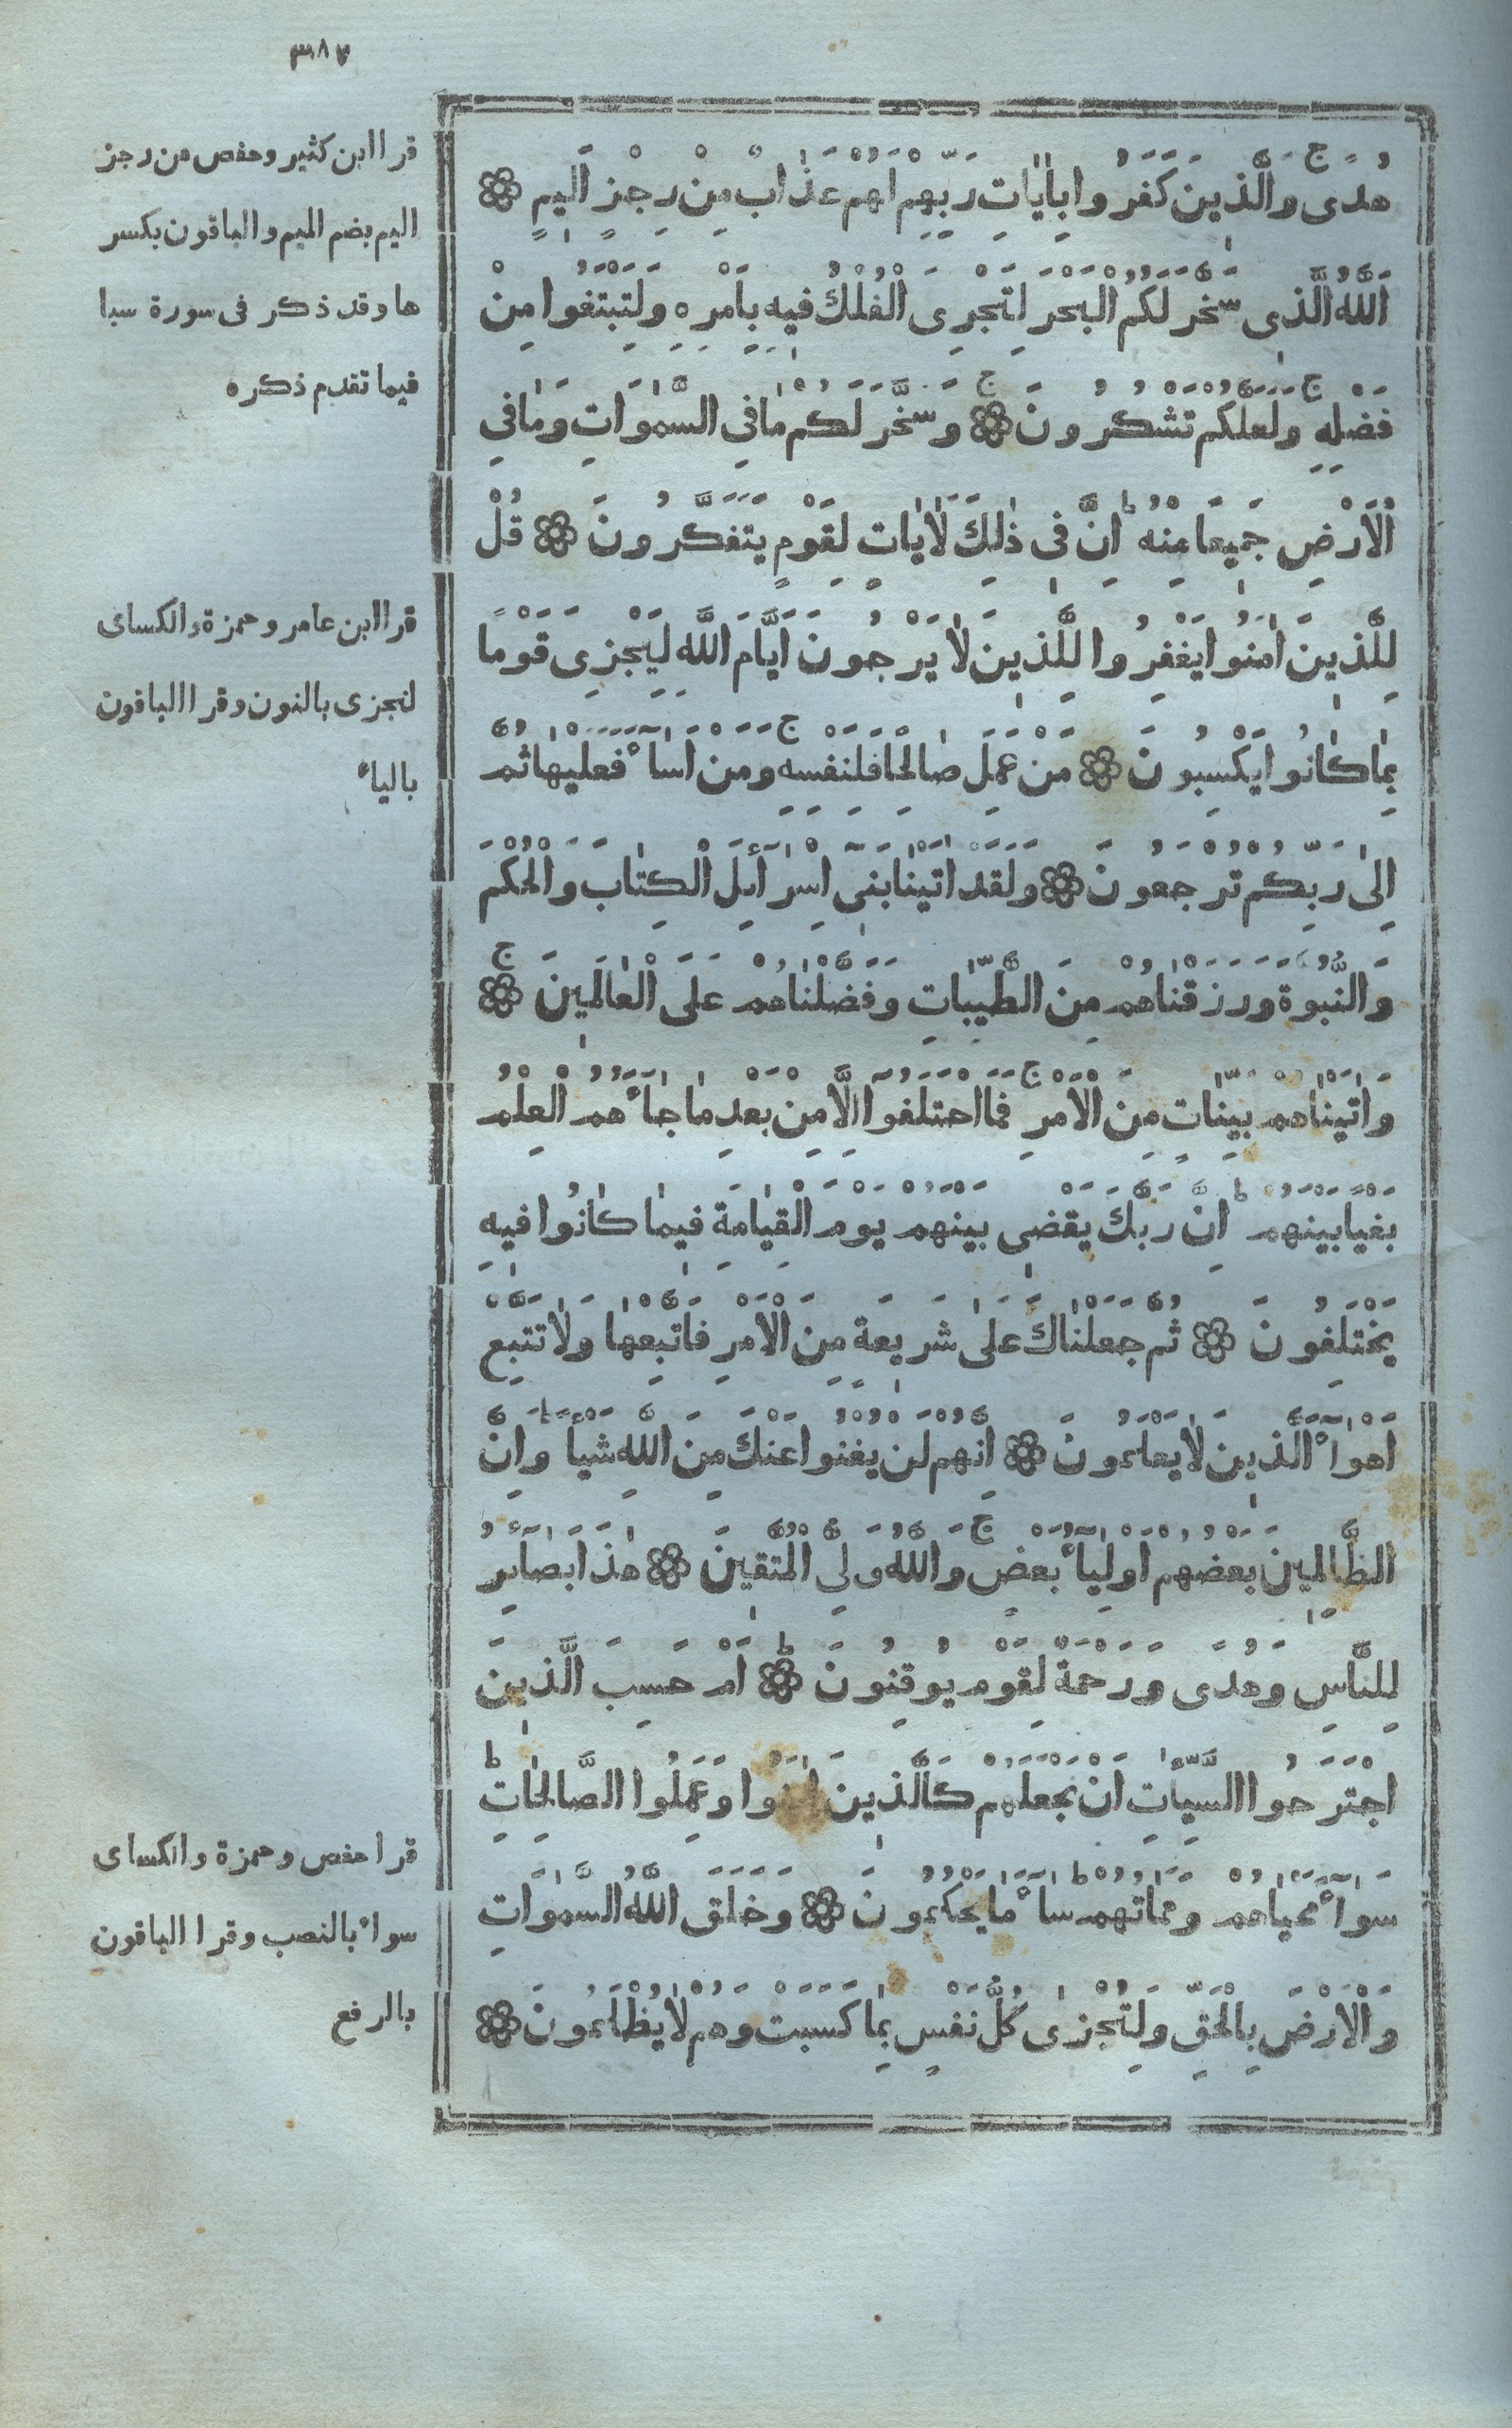 ٣٨٧
هُدًى وَالَّذِينَ كَفَرُوا بِاٰيٰاتِ رَبِّهِمْ لَهُمْ عَذٰابٌ مِنْ رِجْزٍ اَلِيمٍ
اَللّٰهُ الَّذِى سَخَّرَ لَكُمُ الْبَحْرَ لِتَجْرِىَ الْفُلْكُ فِيهِ بِاَمْرِهِ وَلِتَبْتَغُوا مِنْ
فَضْلِهِ وَلَعَلَّكُمْ تَشْكُرُونَ وَسَخَّرَ لَكُمْ مٰا فِى السَّمٰوَاتِ وَمٰا فِى
الْاَرْضِ جَمِيعًا مِنْهُ اِنَّ فِى ذٰلِكَ لَاٰيٰاتٍ لِقَوْمٍ يَتَفَكَّرُونَ قُلْ
لِلَّذِينَ اٰمَنُوا يَغْفِرُوا لِلَّذِينَ لٰا يَرْجُونَ اَيَّامَ اللّٰهِ لِيَجْزِىَ قَوْمًا
بِمٰا كٰانُوا يَكْسِبُونَ مَنْ عَمِلَ صٰالِحًا فَلِنَفْسِهِ وَمَنْ اَسٰآءَ فَعَلَيْهٰا ثُمَّ
اِلٰى رَبِّكُمْ تُرْجَعُونَ وَلَقَدْ اٰتَيْنٰا بَنِىٓ اِسْرٰآئِلَ الْكِتٰابَ وَالْحُكْمَ
وَالنُّبُوَّةَ وَرَزَقْنٰاهُمْ مِنَ الطَّيِّبٰاتِ وَفَضَّلْنٰاهُمْ عَلَى الْعٰالَمِينَ
وَاٰتَيْنٰاهُمْ بَيِّنٰاتٍ مِنَ الْاَمْرِ فَمَا اخْتَلَفُوٓا اِلَّا مِنْ بَعْدِ مٰا جٰآءَهُمُ الْعِلْمُ
بَغْيًا بَيْنَهُمْ اِنَّ رَبَّكَ يَقْضِى بَيْنَهُمْ يَوْمَ الْقِيٰامَةِ فِيمٰا كٰانُوا فِيهِ
يَخْتَلِفُونَ ثُمَّ جَعَلْنٰاكَ عَلٰى شَرِيعَةٍ مِنَ الْاَمْرِ فَاتَّبِعْهٰا وَلٰا تَتَّبِعْ
اَهْوٰآءَ الَّذِينَ لٰا يَعْلَمُونَ اِنَّهُمْ لَنْ يُغْنُوا عَنْكَ مِنَ اللّٰهِ شَيْئًا وَاِنَّ
الظّٰالِمِينَ بَعْضُهُمْ اَوْلِيٰآءُ بَعْضٍ وَاللّٰهُ وَلِىُّ الْمُتَّقِينَ هٰذَا بَصَآئِرُ
لِلنَّاسِ وَهُدًى وَرَحْمَةٌ لِقَوْمٍ يُوقِنُونَ اَمْ حَسِبَ الَّذِينَ
اجْتَرَحُوا السَّيِّئٰاتِ اَنْ نَجْعَلَهُمْ كَالَّذِينَ اٰمَنُوا وَعَمِلُوا الصَّالِحٰاتِ
سَوٰآءً مَحْيٰاهُمْ وَمَمٰاتُهُمْ سٰآءَ مٰا يَحْكُمُونَ وَخَلَقَ اللّٰهُ السَّمٰوَاتِ
وَالْاَرْضَ بِالْحَقِّ وَلِتُجْزٰى كُلُّ نَفْسٍ بِمٰا كَسَبَتْ وَهُمْ لٰا يُظْلَمُونَ
قرا ابن كثير وحفص من رجز
اليم بضم الميم والباقون بكسر
ها وقد ذكر فى سورة سبا
فيما تقدم ذكره
قرا ابن عامر وحمزة والكساى
لنجزى بالنون وقرا الباقون
بالياء
قرا حفص وحمزة والكساى
سواء بالنصب وقرا الباقون
بالرفع